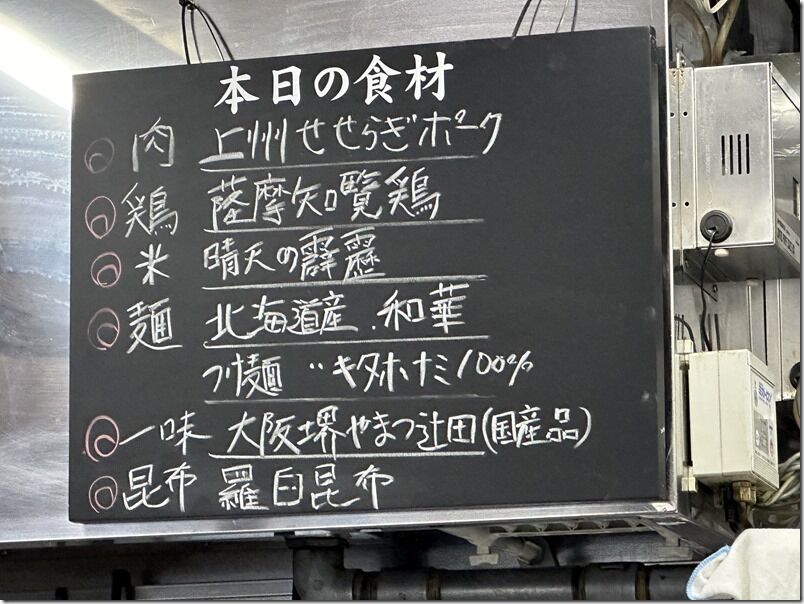 本日の食材
肉 上州せせらぎポーク
鶏 薩摩知覧鶏
米 晴天の霹靂
麺 北海道産.和華
つけ麺 〃 キタホナミ100%
一味 大阪堺やまつ辻田(国産品)
昆布 羅臼昆布